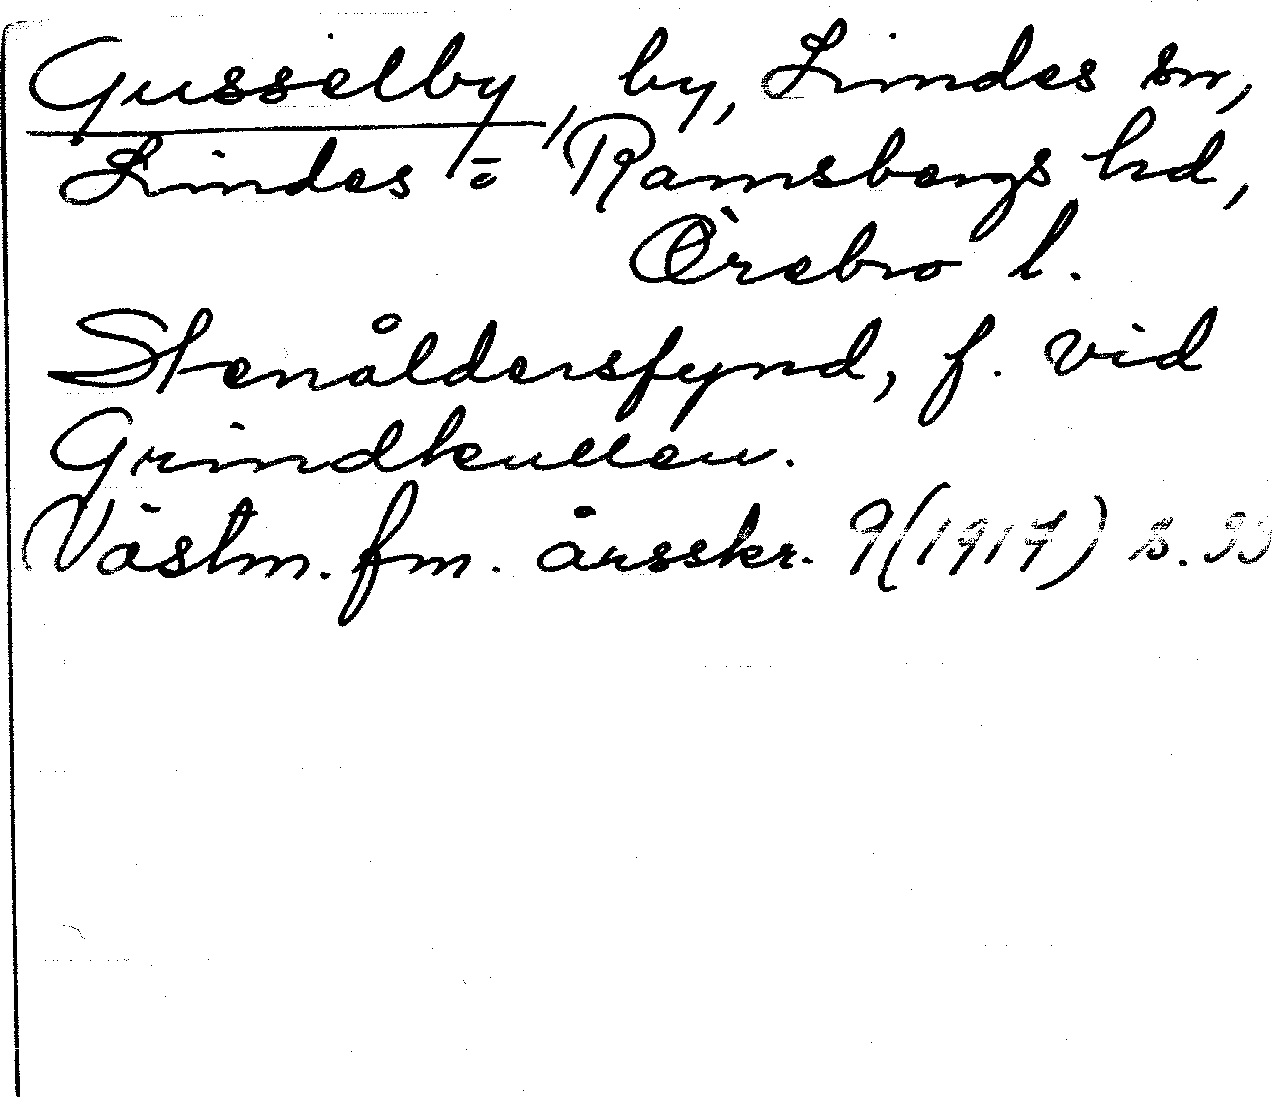 Gusselby, by, Lindes sn,
Lindes o Ramsbergs hd,
Örebro l.
Stenåldersfynd, f. vid
Grindkullen.
Västm. fm. årsskr. 9(1917) s. 99